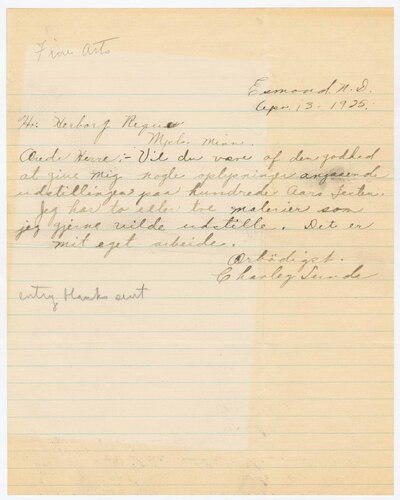 Fine Arts
Esmond N. D.
Apr. 13 - 1925.
Hr. Herborg Reque
Mpls. Minn.
Ærede Herre:- Vil du være af den godhed
at give mig nogle oplysninger angaaende
udstillingen paa hundrede Aars Festen.
Jeg har to eller tre malerier som
jeg gjerne vilde udstille. Det er
mit eget arbeide.
Ærbödigst.
Charley Sunde
entry blanks sent